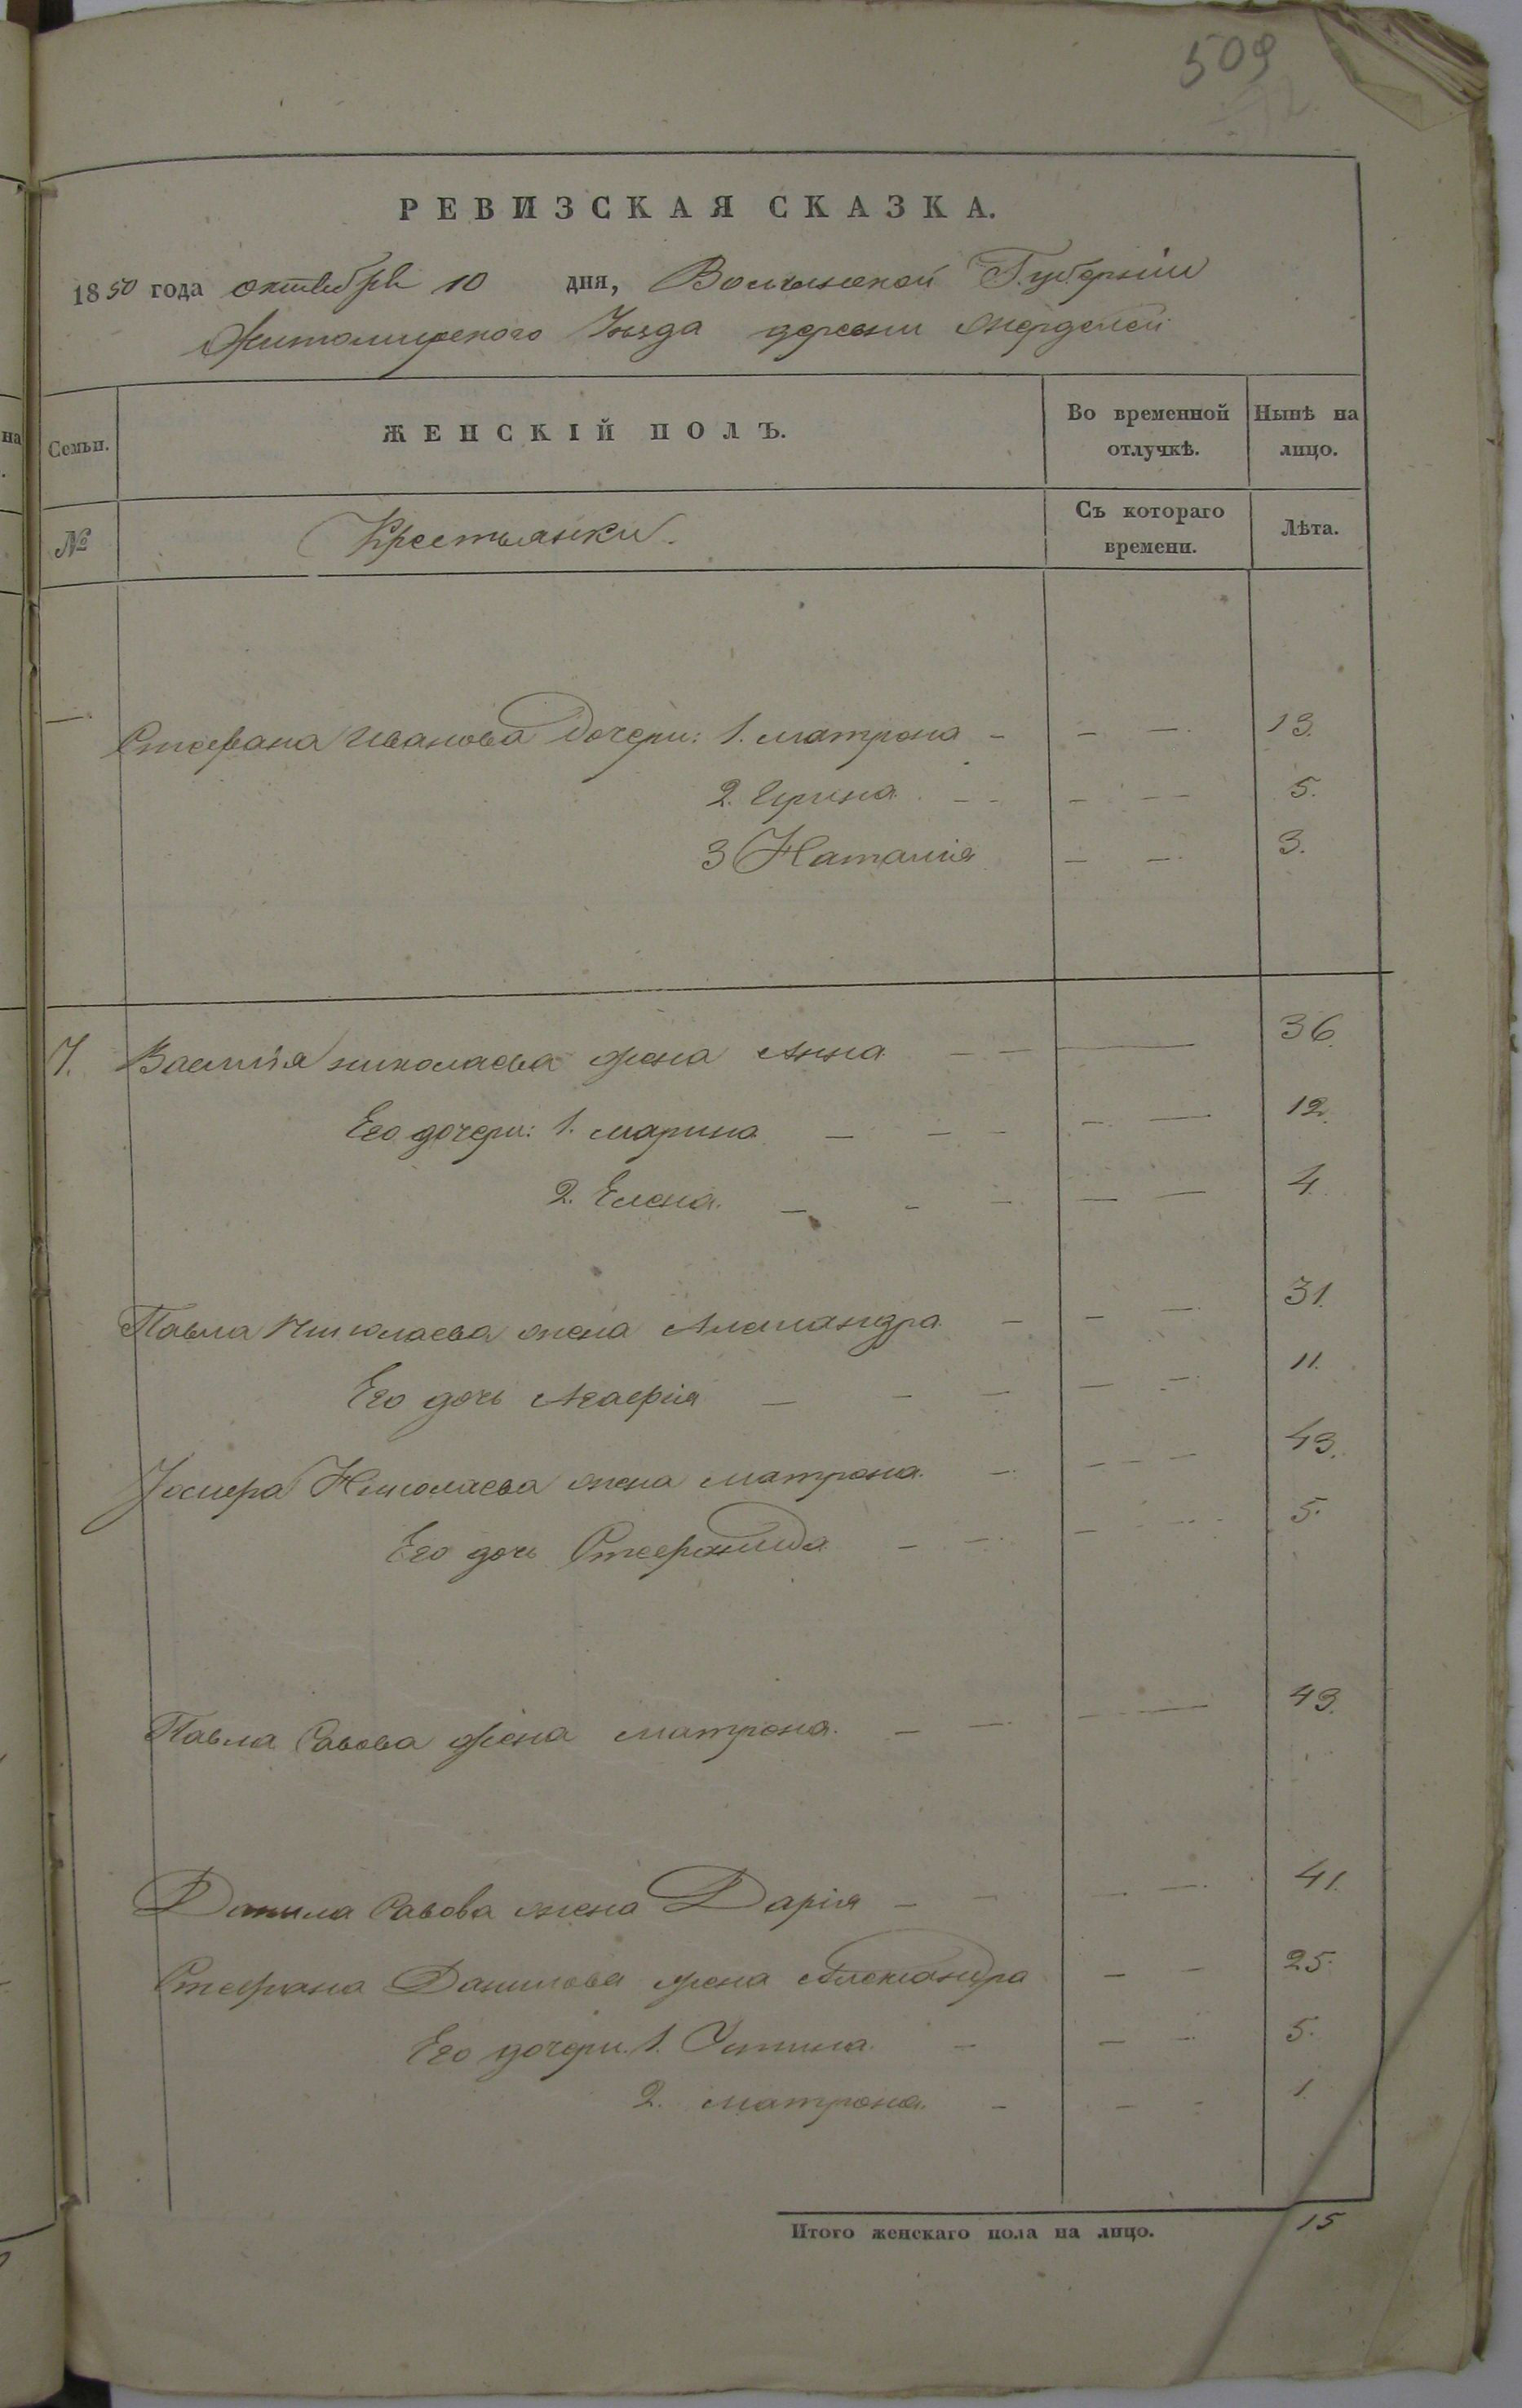 509
РЕВИЗСКАЯ СКАЗКА.
1850 года октября 10 дня, Волынской Губерніи
Житомирского Уѣзда деревни
Семьи.
ЖЕНСКІЙ ПОЛЪ.
Во временной отлучкѣ.
Нынѣ на лицо.
№
Крестьянки.
Съ котораго времени.
Лѣта.
— Стефана Иванова дочери: 1. Матрона - - — 13.
2. Ирина - - - — — 5.
3 Наталія — — 3.
7. Василія Николаева жена Анна — — — 36.
Его дочери: 1. Марина — — — — — 12.
2. Елена. — - — — — 4.
Павла Николаева жена Александра — — — 31.
Его дочь Агафія — — — — — 11.
Николаева жена Матрона. — — — — 43.
Его дочь Стефанида — — — — 5.
Павла Савова жена Матрона. — — — — 43.
Данила Савова жена Дарія — — — — 41.
Стефана Данилова жена Александра — — 25.
Его дочери. 1. Устина. — — — 5.
2. Матрона. — — - 1.
Итого женскаго пола на лицо. 15